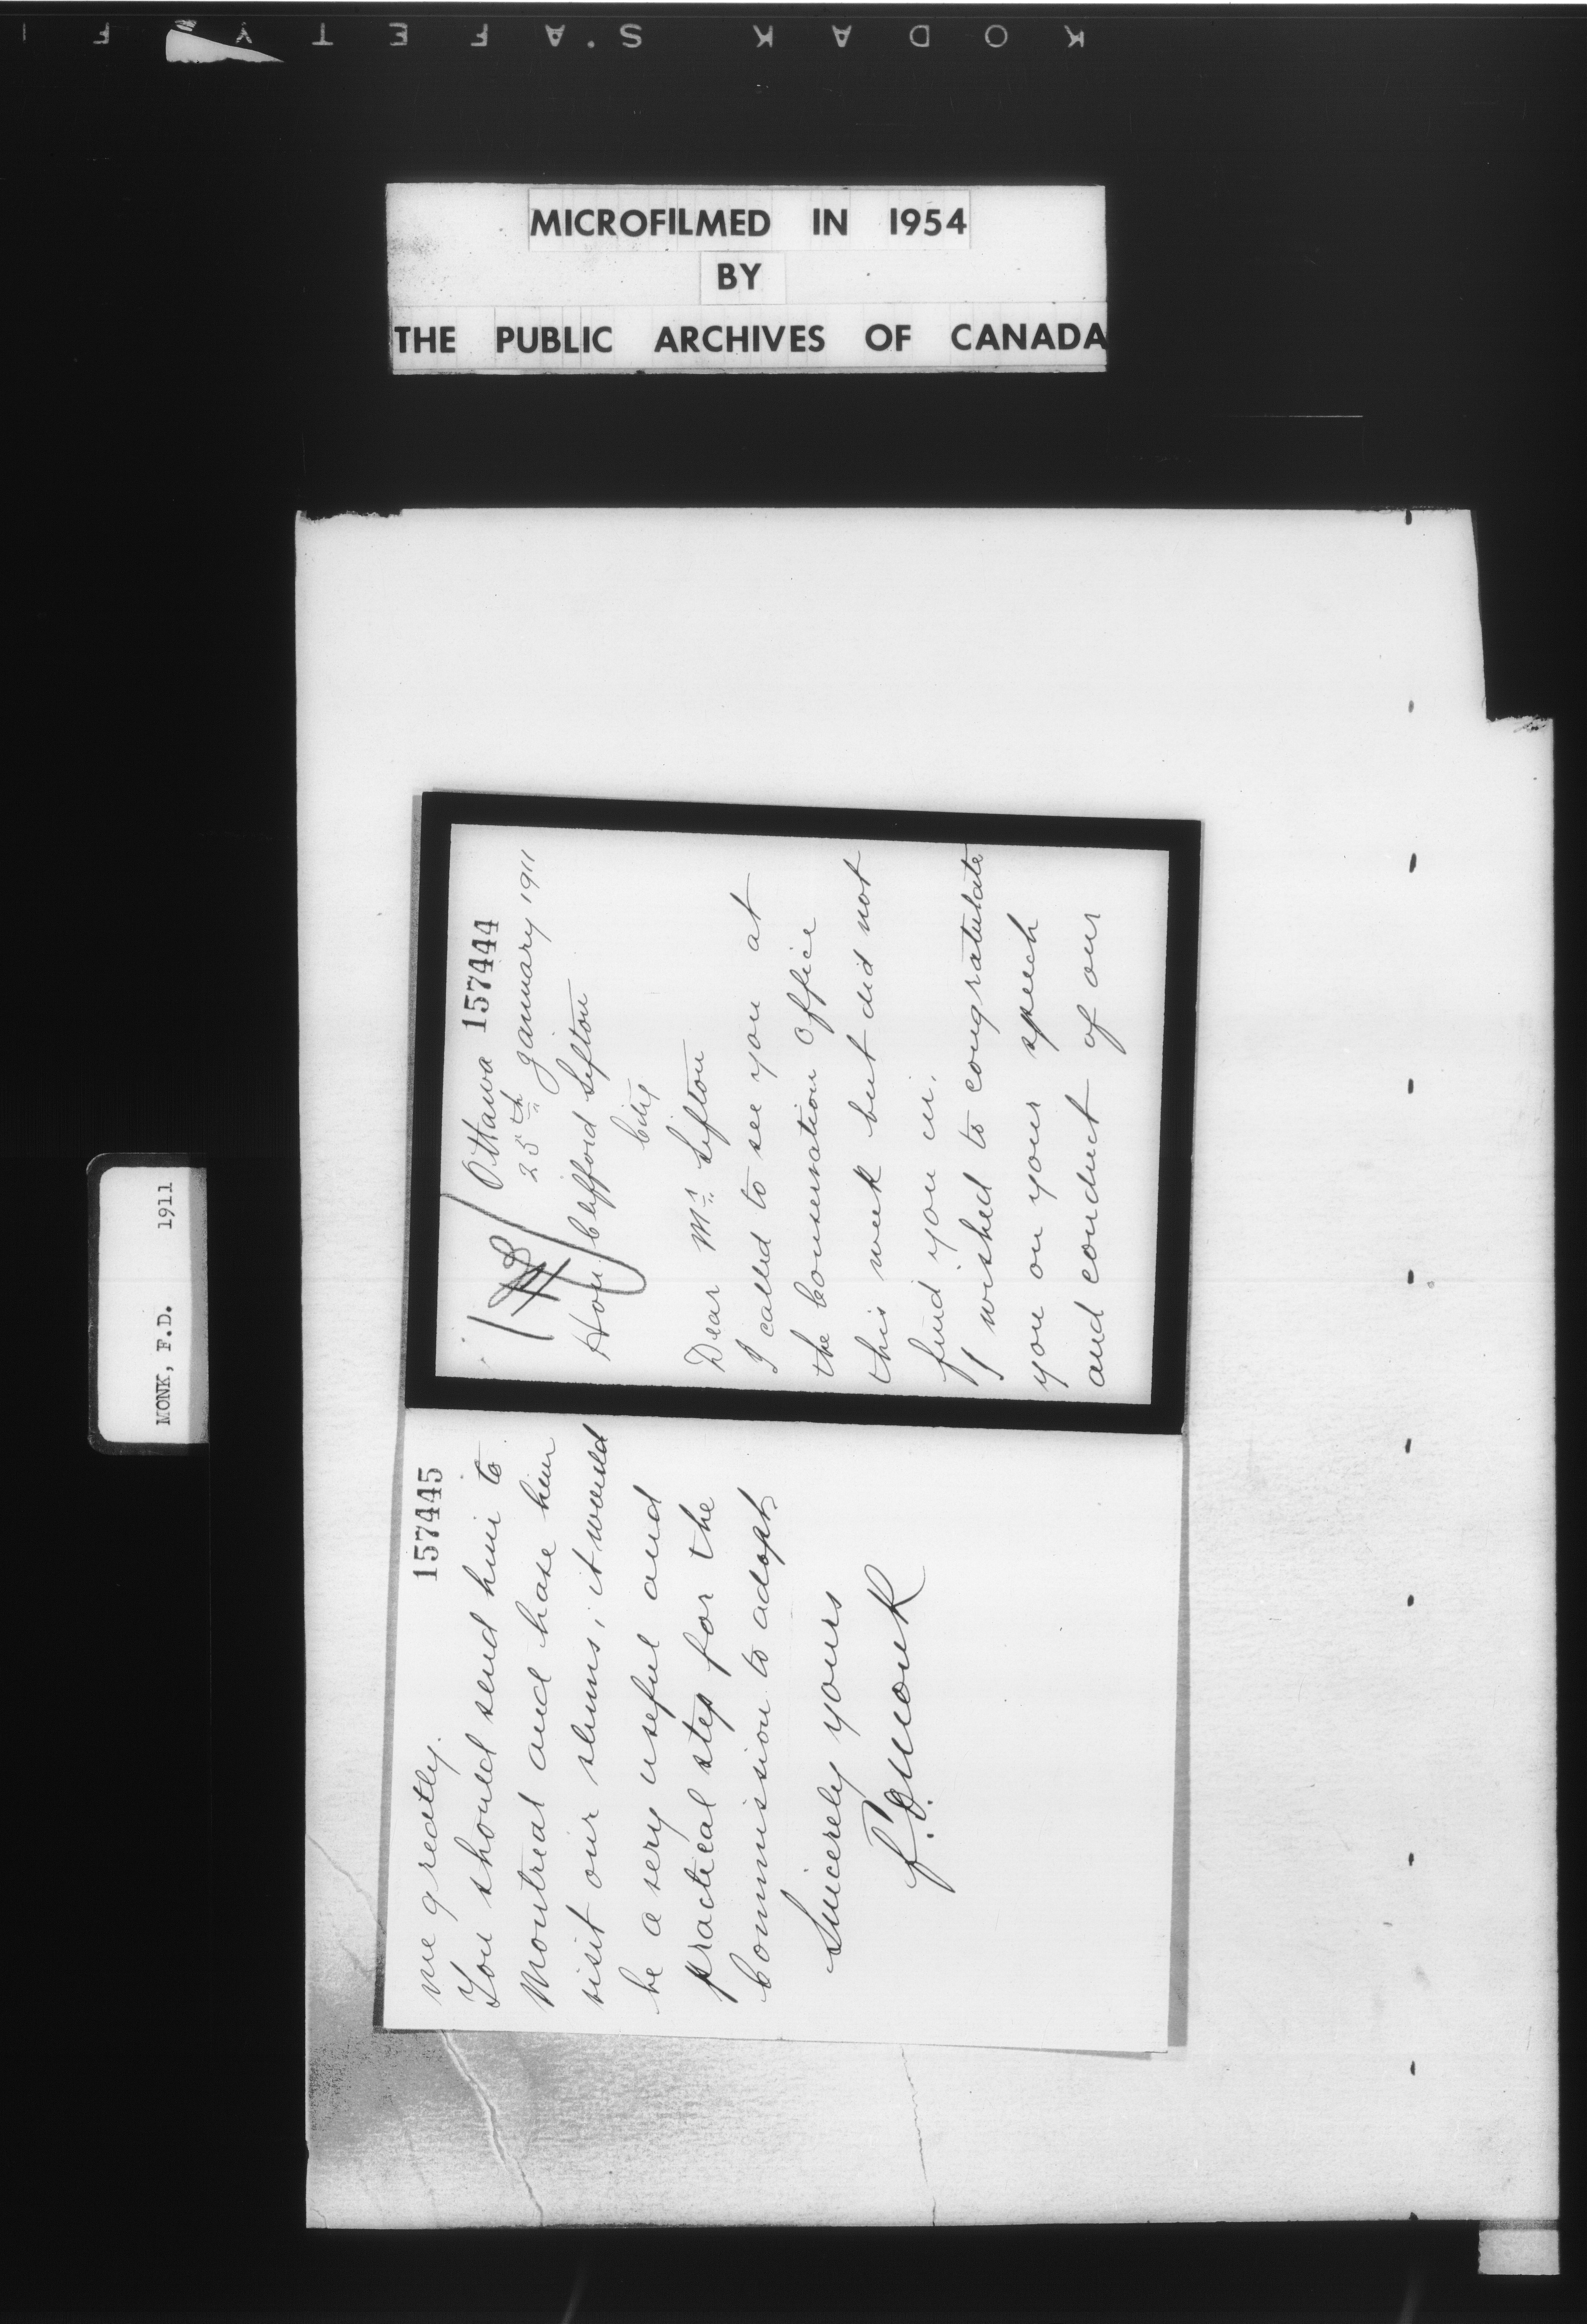 KODAK SAFETY F
MICROFILMED IN 1954
BY
THE PUBLIC ARCHIVES OF CANADA
MONK, F.D. 1911
157444
Ottawa
25th January 1911
Hon. Clifford Sifton
City
Dear Mr. Sifton
I called to see you at
the Conservation Office
this week but did not
find you in.
I wished to congratulate
you on your speech
and conduct of our
157445
me greatly.
You should send him to
Montreal and have him
visit our slums; it would
be a very useful and
practical step for the
Commission to adopt
Sincerely yours
F.D. Monk